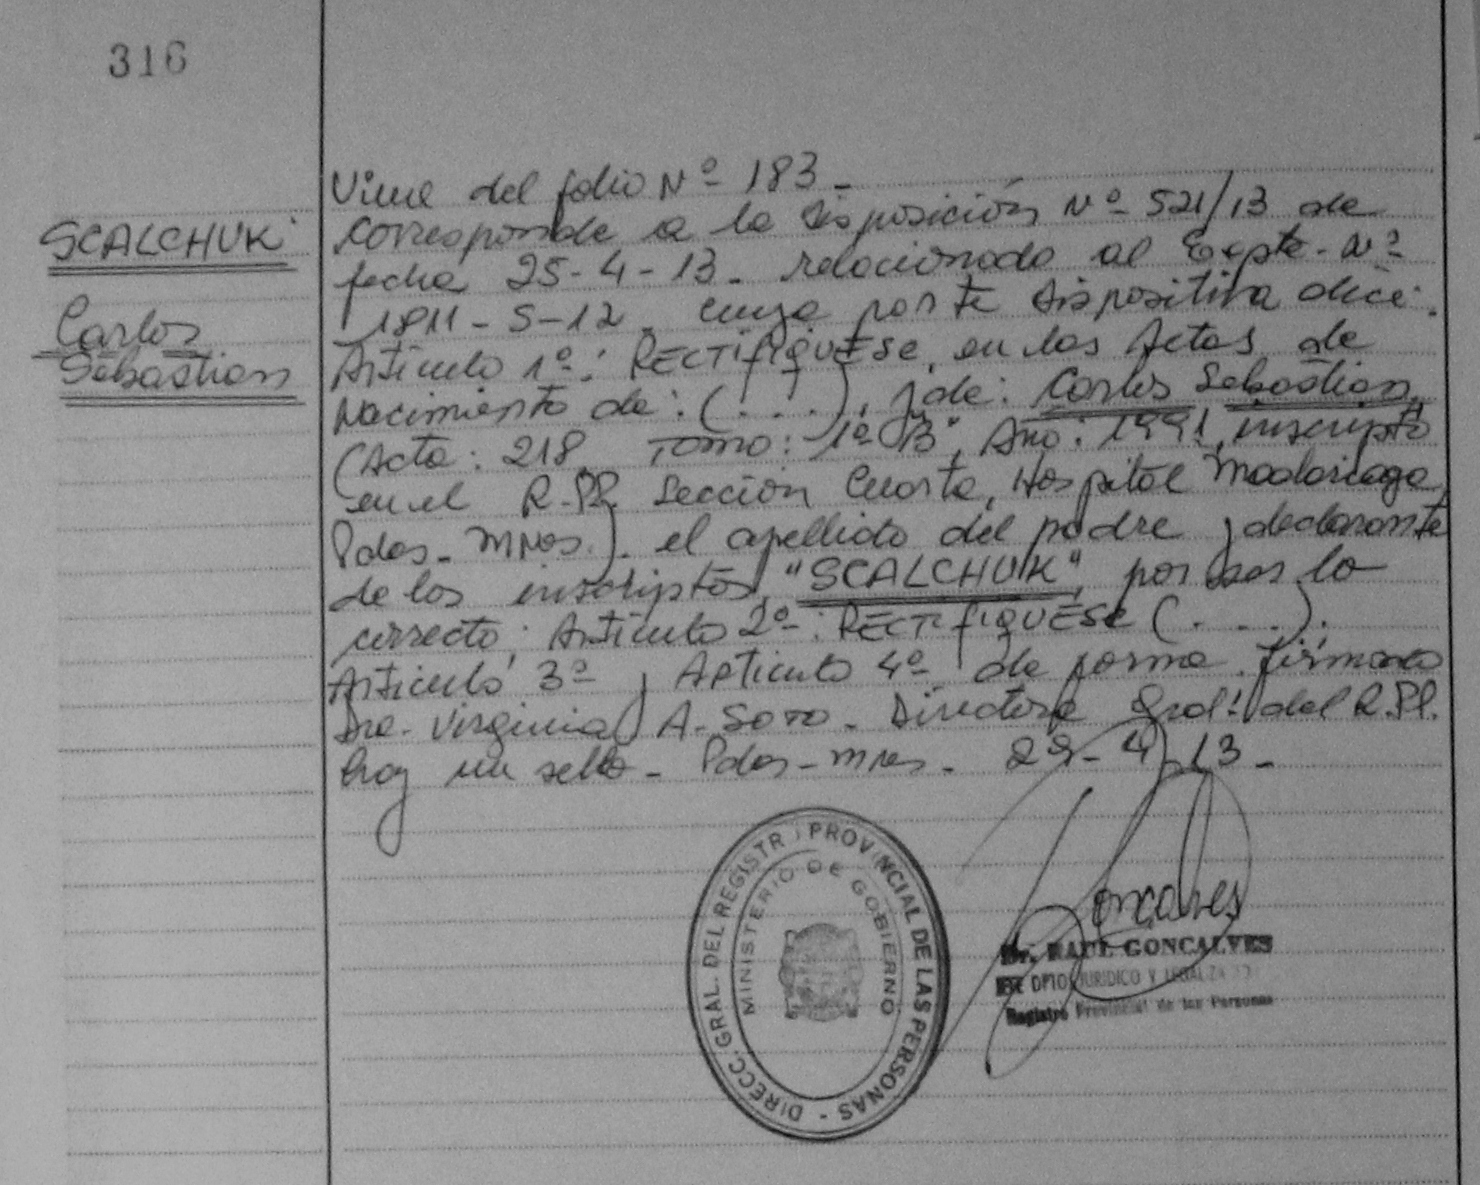 316
SCALCHUK
Carlos
Sebastian
Viene del folio Nº 183-
Corresponde a la disposición Nº 521/13 de
fecha 25-4-13- relacionado al Expte- Nº
1811-S-12, cuya parte dispositiva dice:
Artículo 1º: RECTIFIQUESE, en las Actas de
Nacimiento de: (. . .), y de: Carlos Sebastian,
(Acta: 218, Tomo: 1º B, Año: 1991, inscripto
en el R.PP. Sección Cuarta, Hospital Madariaga,
Pdas- Mnes.). el apellido del padre y declarante
de los inscriptos, "SCALCHUK", por ser lo
correcto; Artículo 2º: RECTIFIQUESE (. . . .).
Artículo 3º y Artículo 4º de forma. firmado
Dra. Virginia A. Soto- Directora Gral. del R.PP.
hay un sello- Pdas- Mnes- 29-4-13-
DIRECC. GRAL. DEL REGISTR PROVINCIAL DE LAS PERSONAS -
MINISTERIO DE GOBIERNO
Goncalves
Dr. RAUL GONCALVES
DPTO JURIDICO Y
Registro Provincial de las Personas